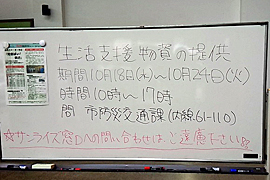 生活支援物資の提供
期間10月18日(水)〜10月24日(火)
時間10時〜17時
問 市防災交通課(内線61-110)
☆サンライズ窓口への問い合わせは、ご遠慮下さい☆